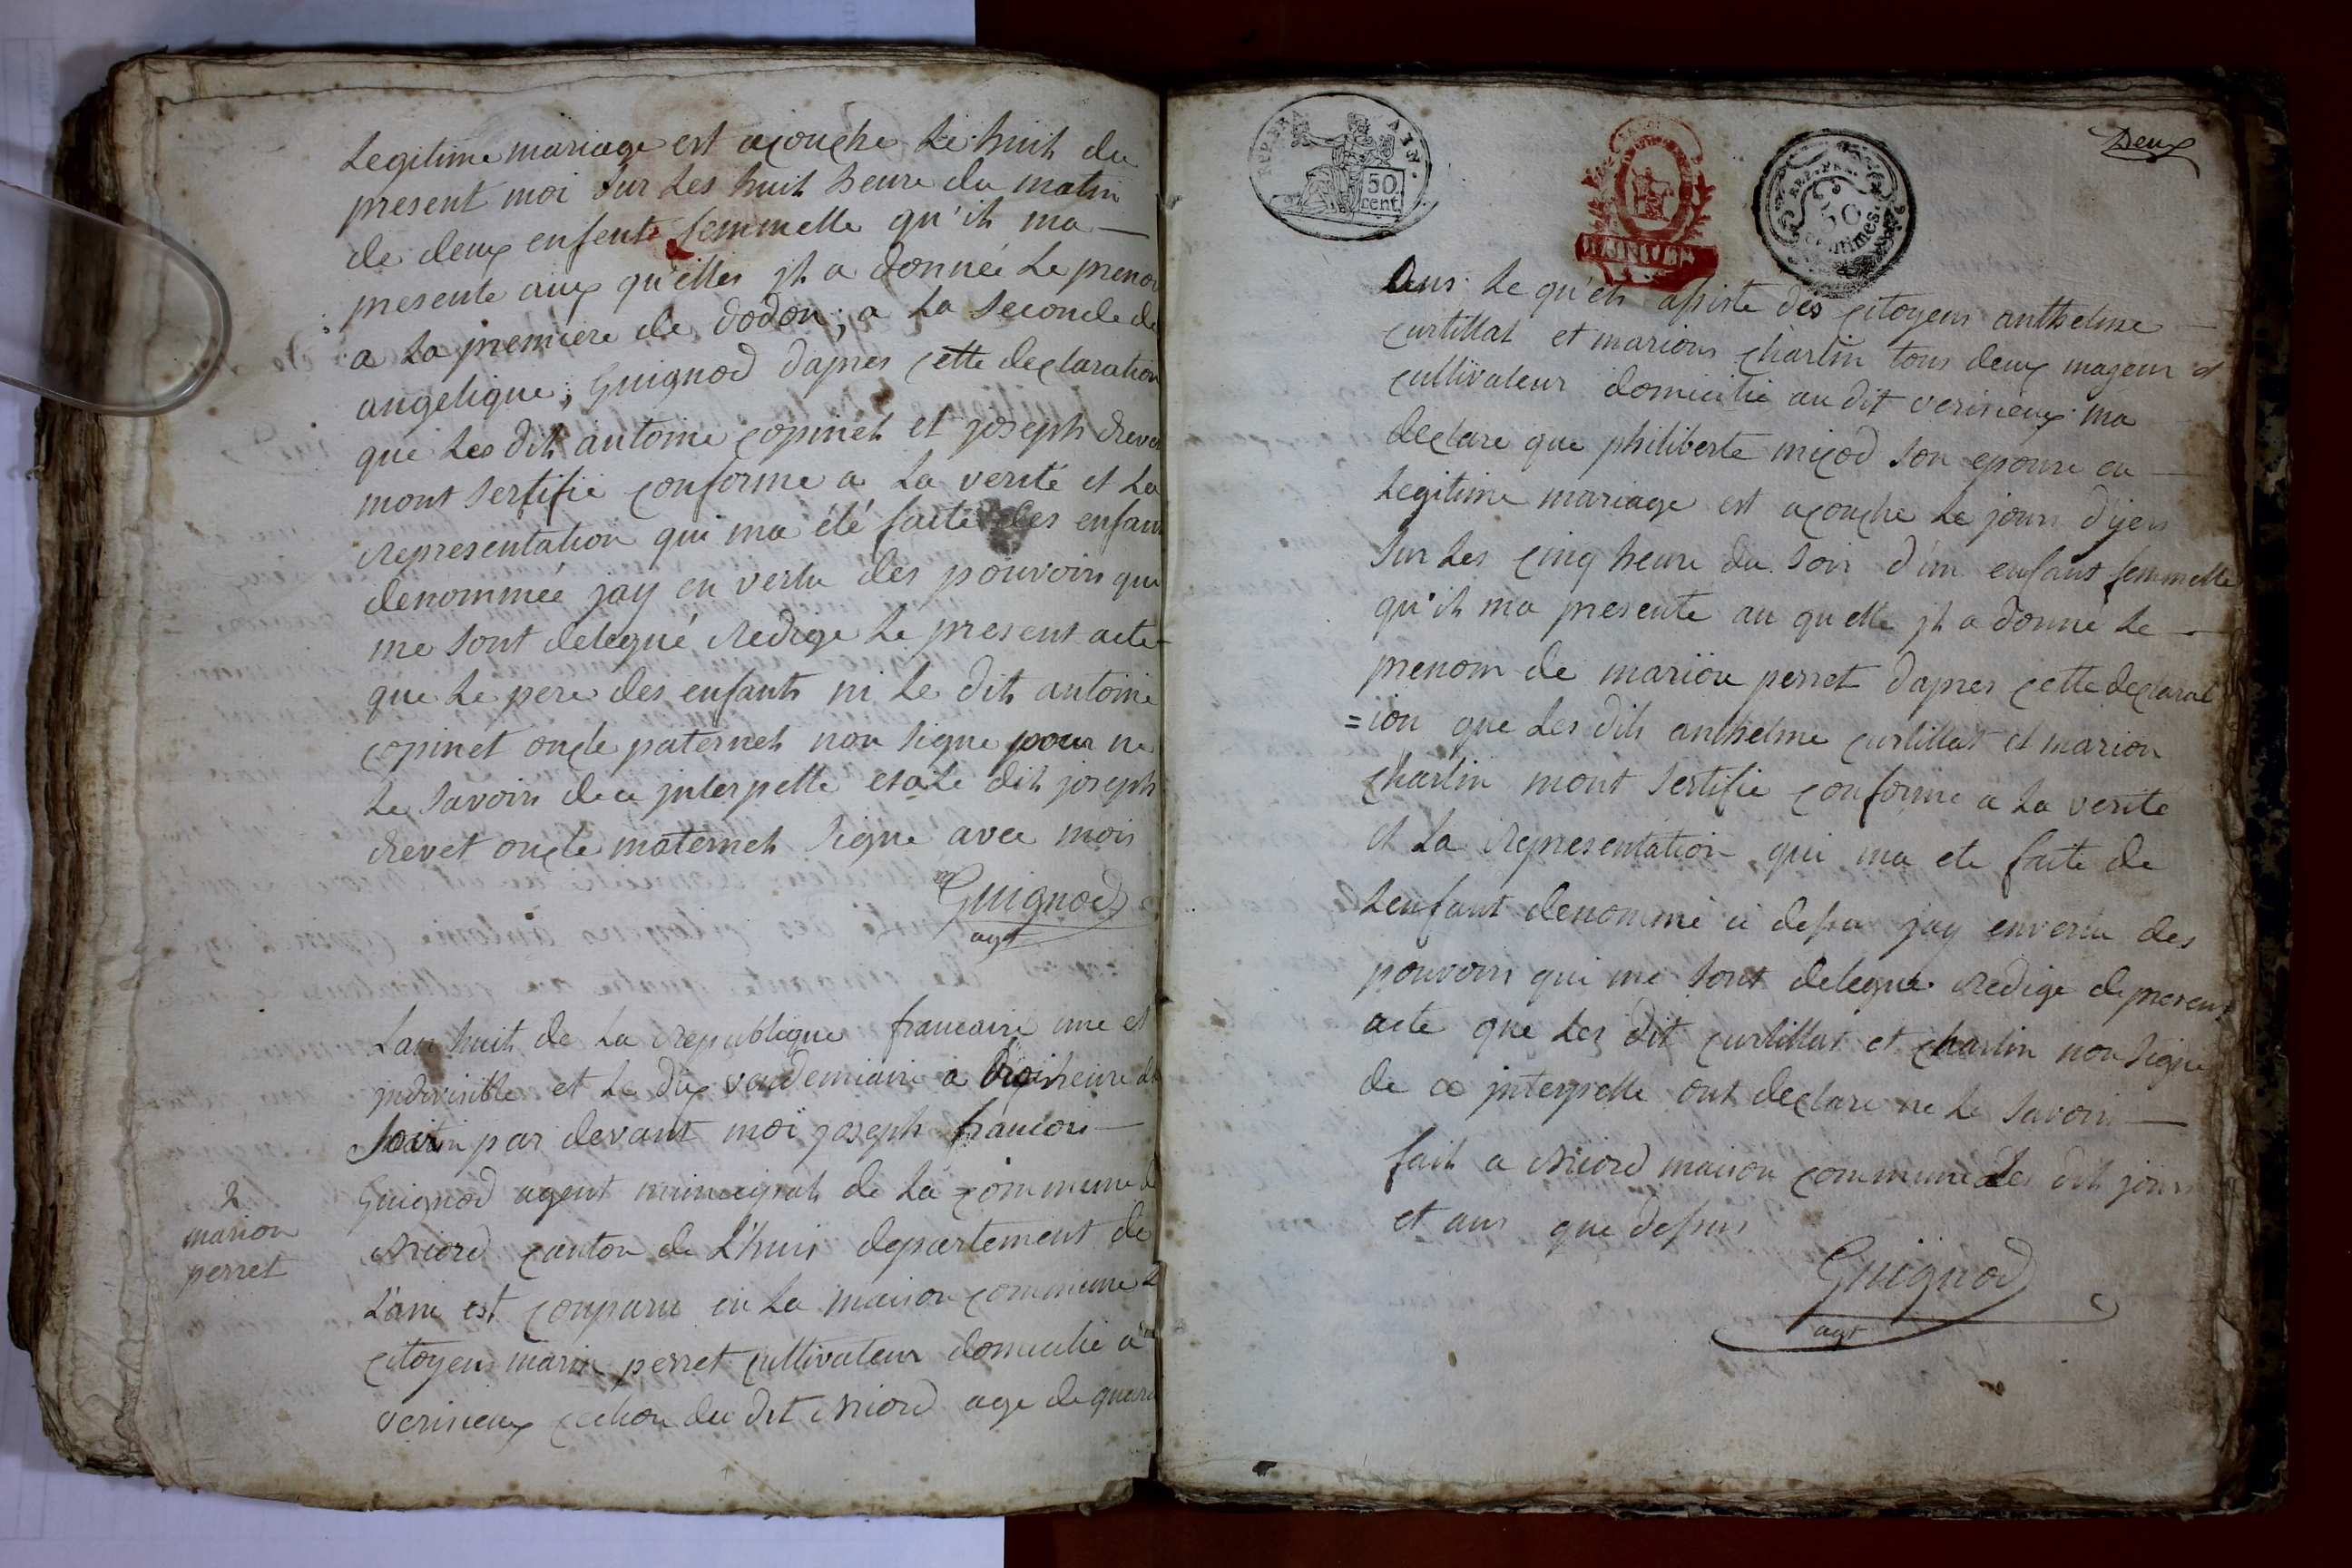 Legitime mariage est acouche Le huit du
present moi Sur Les huit heure du matin
de deux enfents femmelle qu'ih ma
presente aux qu'elles jh a donneé Le prenon
a La premiere de dodon; a La Seconde de
angelique; Guignod dapres cette declaration
que Les dih antoine copineh et joseph drevet
mont Sertifie conforme a La verité et La
representation qui ma été faite des enfans
denommeé jay en vertu des pouvoirs qui
me Sont delegué redige Le present acte
que Le pere des enfants ni Le dih antoine
copinet oncle paterneh non Signe pour ne
Le Savoir de ce jnterpelle et a Le dih joseph
drevet oncle materneh Signe avec mois
Guignod
agt
Lan huit de La republique francaise une et
jndivisible et Le dix vendemiaire a trois heure du
Soir par devant moi joseph francois
Guignod agent municipah de La commune de
2
marion
perret
Niord canton de L'huis departement de
L'ain est conparu en La maison commune L
citoyen marin perret cultivateur domicilie a
verisieux du dit Niord age de quara
Deux
REP. FRA. AIN.
50
cent.
REP. FRA.
50
centimes.
ans Le qu'eh assiste des citoyens anthelme
curtillat et marions charlin tous deux majeur et
cultivateur domicilie au dit verisieux ma
declare que philiberte micod Son epouse en
Legitime mariage est acouche Le jours d'yers
Sur Les cinq heure du Soir d'un enfant femmelle
qu'ih ma presente au quelle jh a donne Le
prenom de marion perret dapres cette declarat
=ion que Les dih anthelme curtillat et marion
charlin mont Sertifie conforme a La verite
et La representation qui ma ete faite de
Lenfant denommé ci dessu jay envertu des
pouvoirs qui me Sont delegue redige de present
acte que Les dit curtillat et charlin non Signe
de ce jnterpelle ont declare ne Le Savoir
fait a Niord maison commune Les dih jours
et ans que dessus
Guignod
agt